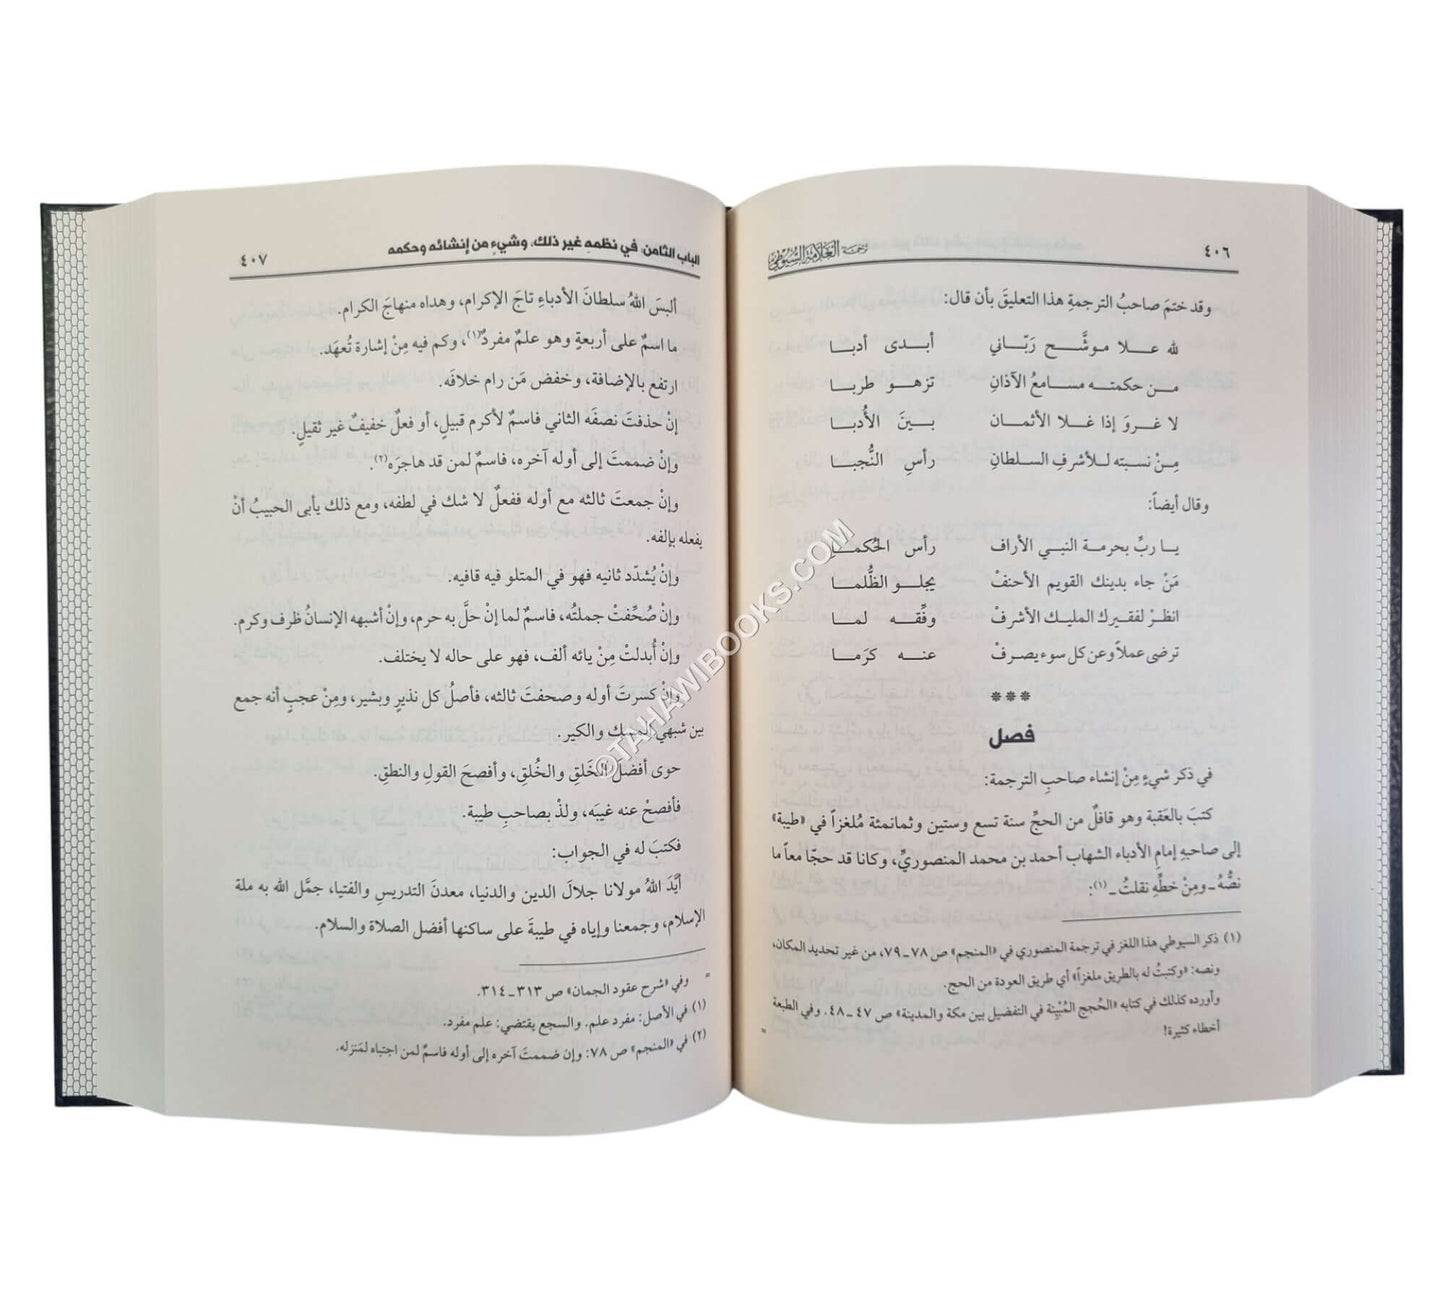 ٤٠٦
ترجمة العلامة السيوطي
وقد ختمَ صاحبُ الترجمةِ هذا التعليقَ بأن قال:
لله عـلا موشَّح رَبّاني أبـدى أدبا
مـن حكمتـه مسامعُ الآذانِ تزهـو طربا
لا غـروَ إذا غـلا الأثمـان بـينَ الأُدبا
مِنْ نسبته للأشرفِ السلطانِ رأسِ النُّجبا
وقال أيضاً:
يـا ربِّ بحرمة النبي الأراف رأس الحُكمـا
مَنْ جاء بدينك القويم الأحنفْ يجلـو الظُّلما
انظرْ لفقيرك المليـك الأشرفْ وفِّقـه لمـا
ترضى عملاً وعن كل سوء يصرفْ عنـه كرَمـا
***
فصل
في ذكر شيءٍ مِنْ إنشاء صاحبِ الترجمة:
كتبَ بالعَقبة وهو قافلٌ من الحجِّ سنة تسع وستين وثمانمئة مُلغزاً في «طيبة»
إلى صاحبِهِ إمامِ الأدباء الشهاب أحمد بن محمد المنصوريِّ، وكانا قد حجّا معاً ما
نصُّهُ ـ ومِنْ خطِّهِ نقلتُ ـ(١):
(١) ذكر السيوطي هذا اللغز في ترجمة المنصوري في «المنجم» ص ٧٨ـ٧٩، من غير تحديد المكان،
ونصه: «وكتبتُ له بالطريق ملغزاً» أي طريق العودة من الحج.
وأورده كذلك في كتابه «الحُجج المُبِيْنَة في التفضيل بين مكة والمدينة» ص ٤٧ـ٤٨. وفي الطبعة
أخطاء كثيرة! =
الباب الثامن، في نظمه غير ذلك، وشيءٍ من إنشائه وحكمه
٤٠٧
ألبسَ اللهُ سلطانَ الأدباءِ تاجَ الإكرام، وهداه منهاجَ الكرام.
ما اسمٌ على أربعةٍ وهو علمٌ مفردٌ(١)، وكم فيه مِنْ إشارة تُعهَد.
ارتفع بالإضافة، وخفض مَن رام خلافَه.
إنْ حذفتَ نصفَه الثاني فاسمٌ لأكرم قبيلٍ، أو فعلٌ خفيفٌ غير ثقيلٍ.
وإنْ ضممتَ إلى أوله آخره، فاسمٌ لمن قد هاجرَه(٢).
وإنْ جمعتَ ثالثه مع أوله ففعلٌ لا شك في لطفه، ومع ذلك يأبى الحبيبُ أنْ
يفعله بإلفه.
وإنْ يُشدّد ثانيه فهو في المتلو فيه قافيه.
وإنْ صُحِّفتْ جملتُه، فاسمٌ لما إنْ حلَّ به حرم، وإنْ أشبهه الإنسانُ ظرف وكرم.
وإنْ أُبدلتْ مِنْ يائه ألف، فهو على حاله لا يختلف.
وإنْ كسرتَ أوله وصحفتَ ثالثه، فأصلُ كل نذيرٍ وبشير، ومِنْ عجبٍ أنه جمع
بين شبهي المسك والكير.
حوى أفضل الخَلقِ والخُلقِ، وأفصحَ القولِ والنطقِ.
فأفصحْ عنه غيبَه، ولذْ بصاحبِ طيبة.
فكتبَ له في الجواب:
أيَّدَ اللهُ مولانا جلالَ الدين والدنيا، معدنَ التدريسِ والفتيا، جمَّل الله به ملة
الإسلام، وجمعنا وإياه في طيبةَ على ساكنها أفضل الصلاة والسلام.
= وفي «شرح عقود الجمان» ص ٣١٣ـ٣١٤.
(١) في الأصل: مفرد علم. والسجع يقتضي: علم مفرد.
(٢) في «المنجم» ص ٧٨: وإن ضممتَ آخره إلى أوله فاسمٌ لمن اجتباه لمَنزله.
©TAHAWIBOOKS.COM